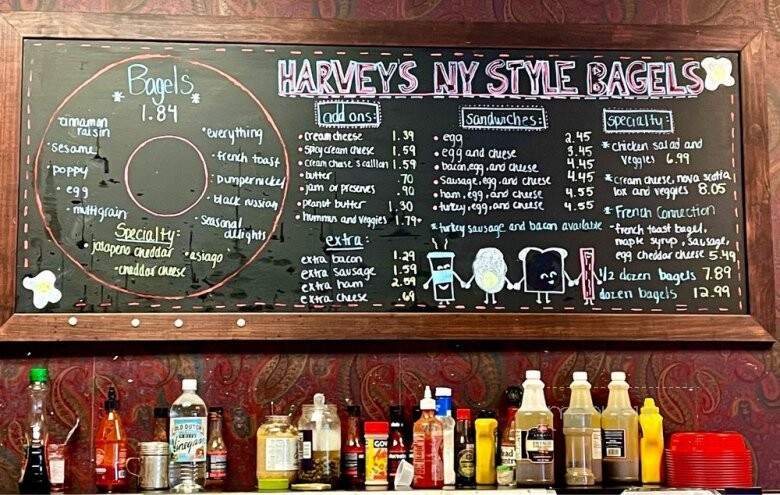 HARVEYS NY STYLE BAGELS
Bagels
1.84
cinnamon
raisin
sesame
poppy
egg
multigrain
everything
french toast
pumpernickel
black russian
seasonal
delights
Specialty:
jalapeno cheddar
asiago
cheddar cheese
add ons:
cream cheese 1.39
spicy cream cheese 1.59
cream cheese & scallion 1.59
butter .70
jam or preserves .90
peanut butter 1.30
hummus and veggies 1.79+
extra:
extra bacon 1.29
extra sausage 1.59
extra ham 2.09
extra cheese .69
sandwiches:
egg 2.45
egg and cheese 3.45
bacon, egg, and cheese 4.45
sausage, egg, and cheese 4.45
ham, egg, and cheese 4.55
turkey, egg, and cheese 4.55
*turkey sausage and bacon available
specialty:
*chicken salad and
veggies 6.99
*cream cheese, nova scotia
lox and veggies 8.05
*French Connection
-french toast bagel,
maple syrup, sausage,
egg cheddar cheese 5.49
1/2 dozen bagels 7.89
dozen bagels 12.99
OLD DUTCH
Vinegar
GOYA